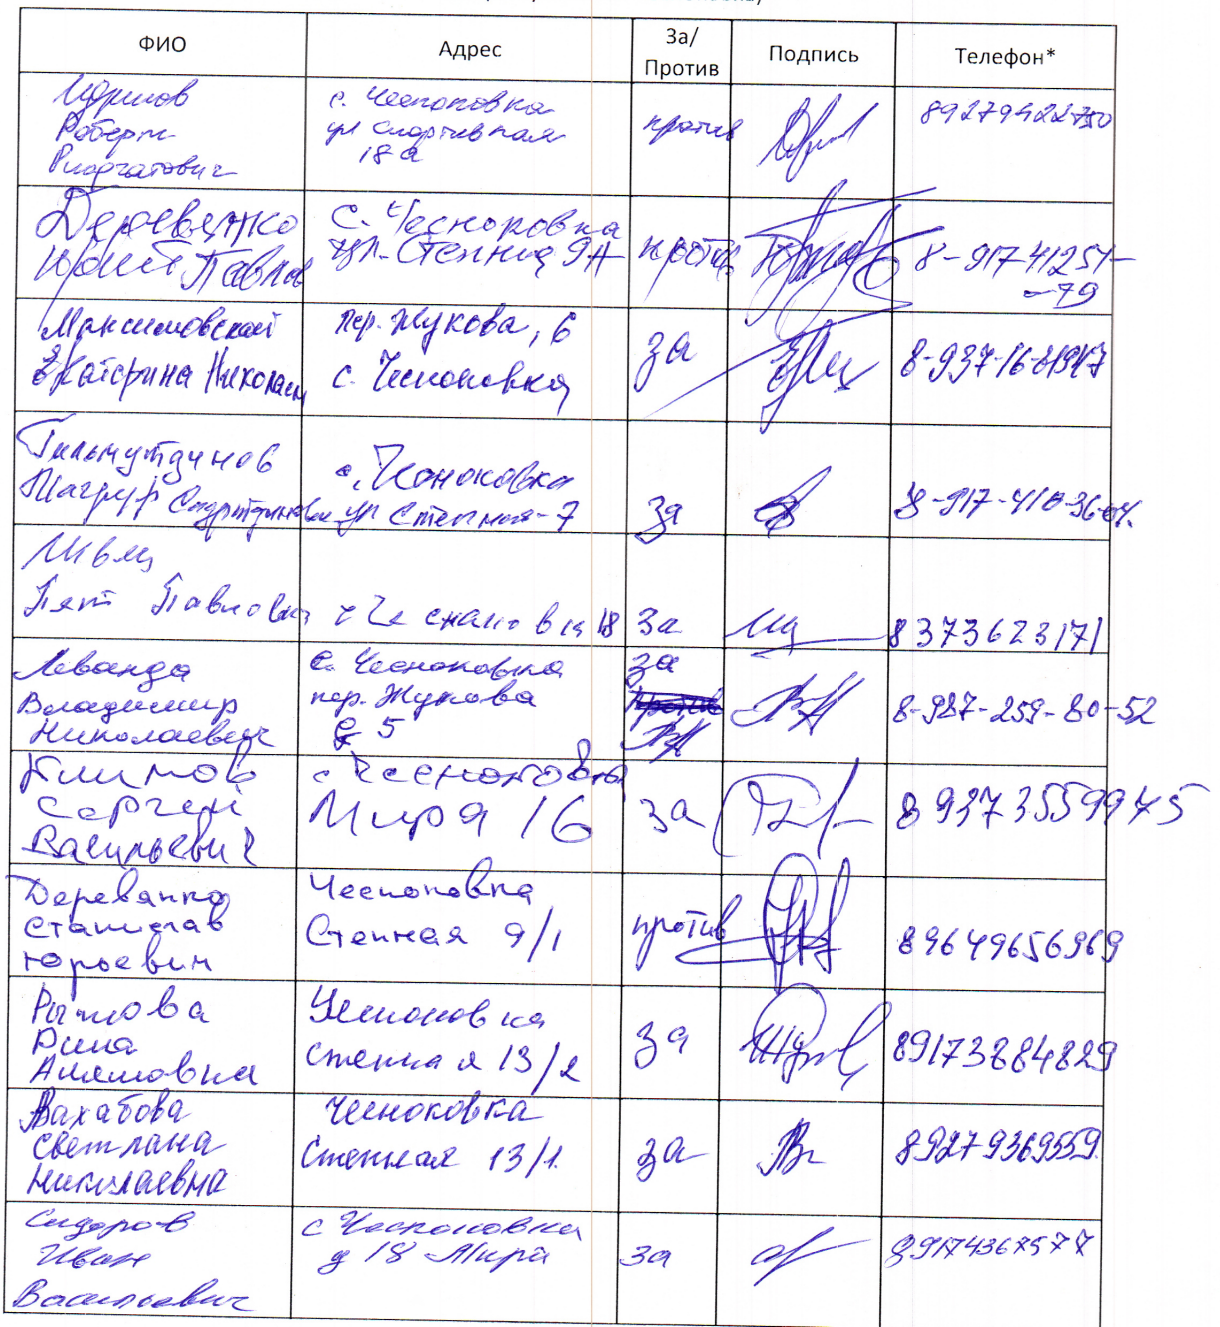 ФИО Адрес За/Против Подпись Телефон*
Роберт
с. Чесноковка
ул Спортивная
18а
против
Деревянко
Юрий Павлов
с. Чесноковка
ул. Степная 9А
против
8-917 41251-
-79
Максимовская
Екатерина Николаевн
пер. Жукова, 6
с. Чесноковка
за
Гильмутдинов
с. Чесноковка
ул Степная-7
за
8-917-410-36-04.
Швец
Павлович
за
8373623171
Леванда
Владимир
Николаевич
с. Чесноковка
пер. Жукова
5
за
против
8-987-259-80-52
Климов
Сергей
Васильевич
с Чесноковка
Мира 16
за
8 9373559975
Деревянко
Станислав
Юрьевич
Чесноковка
Степная 9/1
против
89649656969
Чесноковка
Степная 13/2
за
89173884829
Вахабова
Светлана
Николаевна
Чесноковка
Степная 13/1.
за
89279369559.
Сидоров
Иван
Васильевич
с Чесноковка
д 18 Мира
за
89174367577